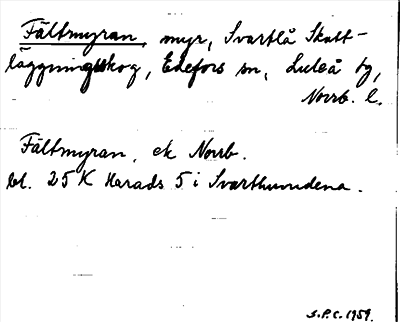 Fältmyran, myr, Svartlå Skatt-
läggningsskog, Edefors sn, Luleå tg,
Norrb. l.
Fältmyran, ek Norrb.
bl. 25 K Harads 5 i Svarthundena.
S.P.C. 1959.